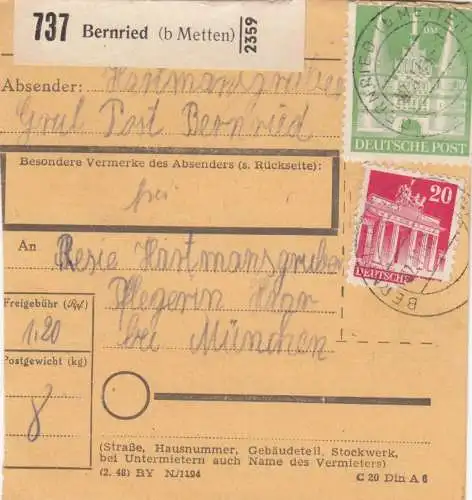 737 Bernried (b Metten) 2359
Absender: Hartmansgruber
Grub Post Bernried
DM
DEUTSCHE POST
BERNRIED (b METTEN)
Besondere Vermerke des Absenders (s. Rückseite):
frei
20
DEUTSCHE
An Resie Hartmansgruber
Pflegerin Haar
bei München
Freigebühr (Rpf)
1.20
Postgewicht (kg)
8
(Straße, Hausnummer, Gebäudeteil, Stockwerk,
bei Untermietern auch Name des Vermieters)
(2. 48) BY N/1194
C 20 Din A 6